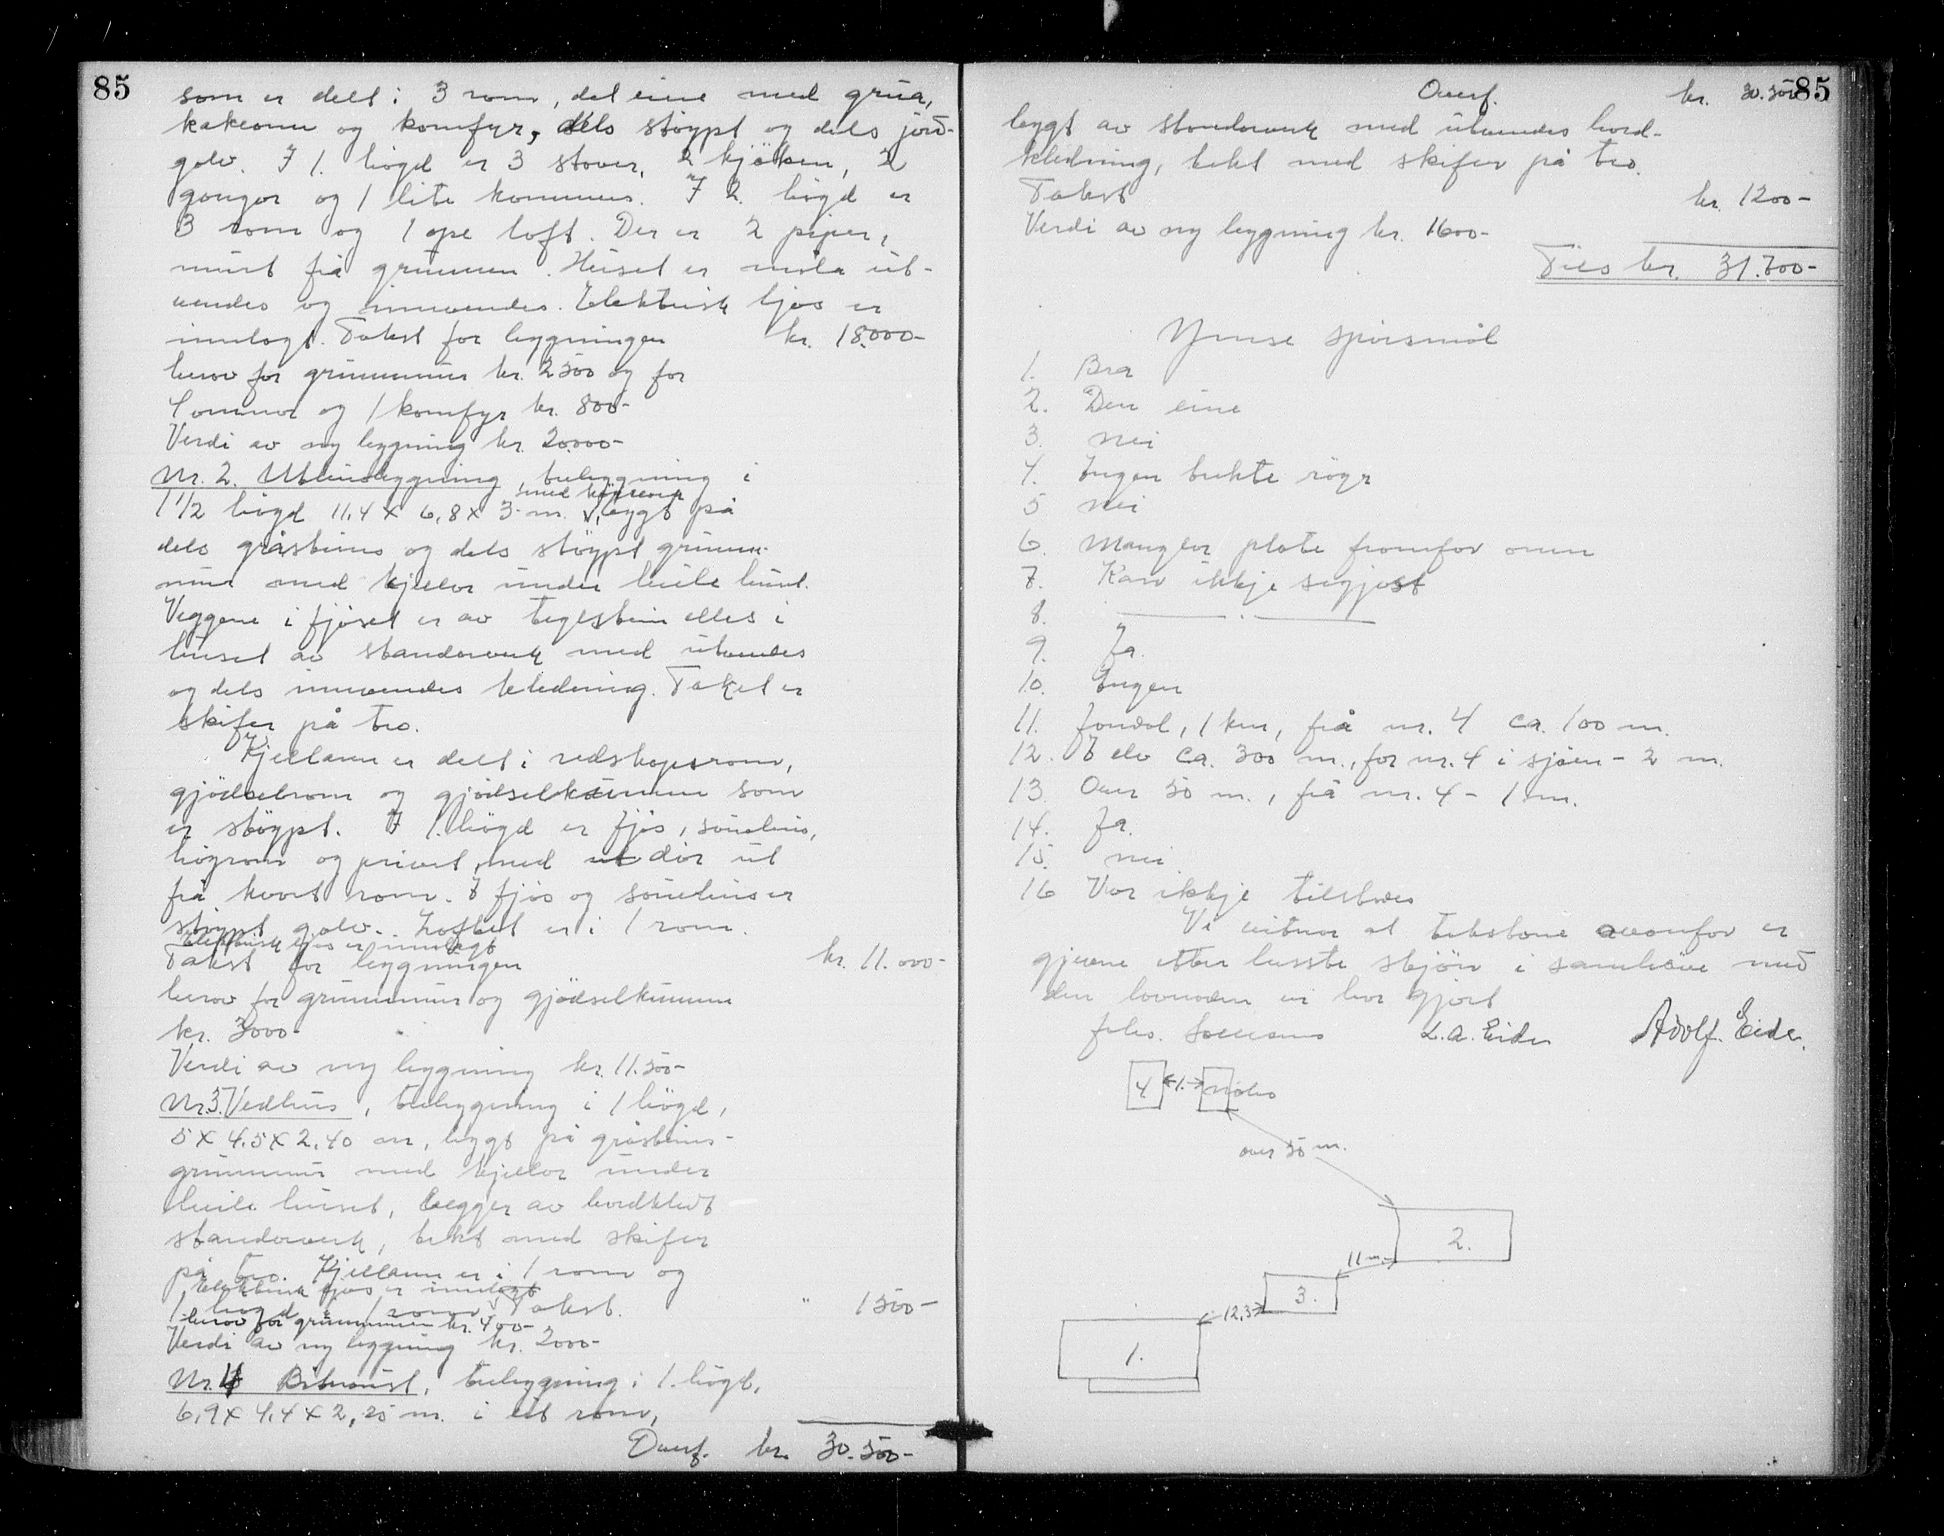 85
som er delt i 3 rom, det eine med grua,
kakeomn og komfyr, dels støypt og dels jord-
golv. I 1. högd er 3 stover, 2 kjöken, 2
gonger og 1 lite kommers. I 2. högd er
3 rom og 1 ope loft. Der er 2 piper,
murt frå grunnen. Huset er måla ut-
vendes og innvendes. Elektrisk ljos er
innlagt. Takst for bygningen kr. 18.000-
herav for grunnmur kr. 2500 og for
4 omnar og 1 komfyr kr. 800-
Verdi av ny bygning kr. 20.000-
Nr. 2. Uthusbygning, trebygning i
1 1/2 högd 11,4 x 6,8 x 3 m. bygt på
dels gråsteins og dels støypt grunn-
mur med kjellar under heile huset.
Veggene i fjöset er av teglstein elles i
huset av standarverk med utvendes
og dels innvendes kledning. Taket er
skifer på tro.
Kjellaren er delt i redskapsrom,
gjödselrom og gjödselkum som
er støypt. I 1. högd er fjös, sauehus,
höyrom og privet, med dör ut
frå kvart rom. I fjös og sauehus er
støypt golv. Loftet er i 1 rom.
Elektrisk ljos er innlagt
Takst for bygningen kr. 11.000-
herav for grunnmur og gjödselkum
kr. 3000-
Verdi av ny bygning kr. 11.500-
Nr. 3. Vedhus, trebygning i 1 högd,
5 x 4.5 x 2.40 m, bygt på gråsteins-
grunnmur med kjellar under
heile huset, vegger av bordkledt
standarverk, tekt med skifer
på tro. Kjellaren er i 1 rom og
Elektrisk ljos er innlagt
1. högd i 1 rom. Takst. " 1500-
herav for grunnmur kr. 400-
Verdi av ny bygning kr. 2000-
Nr. 4 Båtnaust, trebygning i 1. högd,
6,9 x 4,4 x 2,25 m. i eit rom,
Overf. kr. 30.500-
85
Overf. kr. 30.500
bygt av standarverk med utvendes bord-
kledning, tekt med skifer på tro.
Takst kr. 1200-
Verdi av ny bygning kr. 1600-
Tils kr. 31.700-
Ymse spörsmål
1. Bra
2. Den eine
3. nei
4. Ingen trekte röyr
5 nei
6. Manglar plate framfor omn
7. Kan ikkje segjast
8. —— . ——
9. Ja.
10. Ingen
11. Jondal, 1 km, frå nr. 4 ca. 100 m.
12. I elv ca. 300 m., for nr. 4 i sjöen - 2 m.
13. Over 50 m., frå nr. 4 - 1 m.
14. Ja.
15. nei
16 Var ikkje tilstades
Vi vitnar at takstane ovanfor er
gjevne etter beste skjön i samhöve med
den lovnaden vi har gjort
Johs. L. A. Eide Adolf Eide.
4 1. nabo
over 50 m.
2.
11 m.
3.
12,3
1.